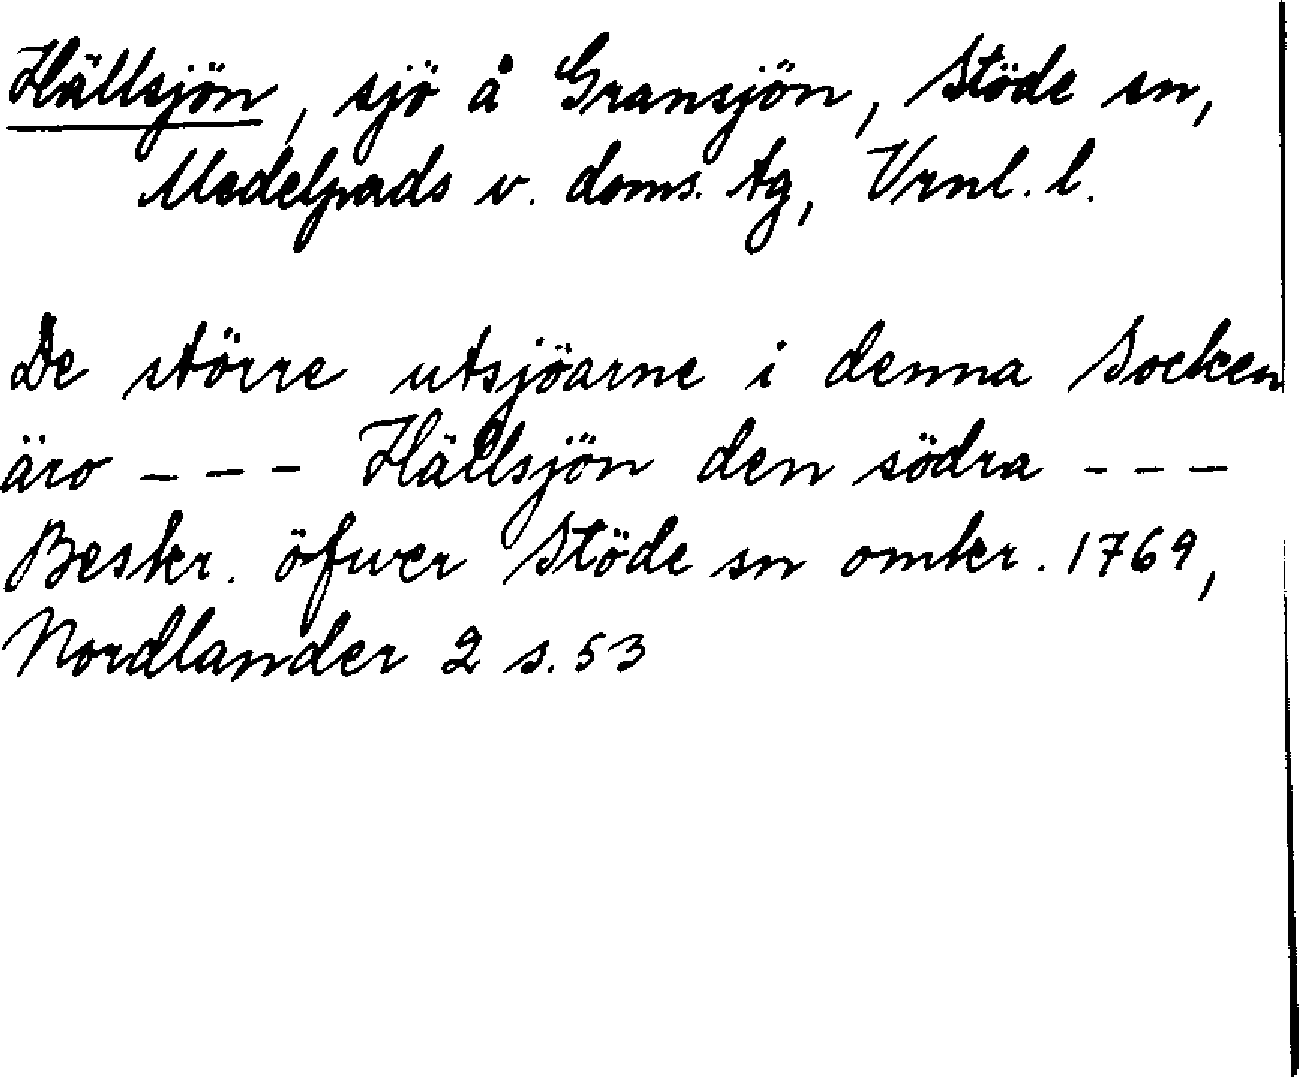 Hällsjön, sjö å Gransjön, Stöde sn,
Medelpads v. doms. tg, Vrnl. l.
De större utsjöarne i denna Socken
äro - - - Hällsjön den södra - - -
Beskr. öfwer Stöde sn omkr. 1769,
Nordlander 2 s. 53